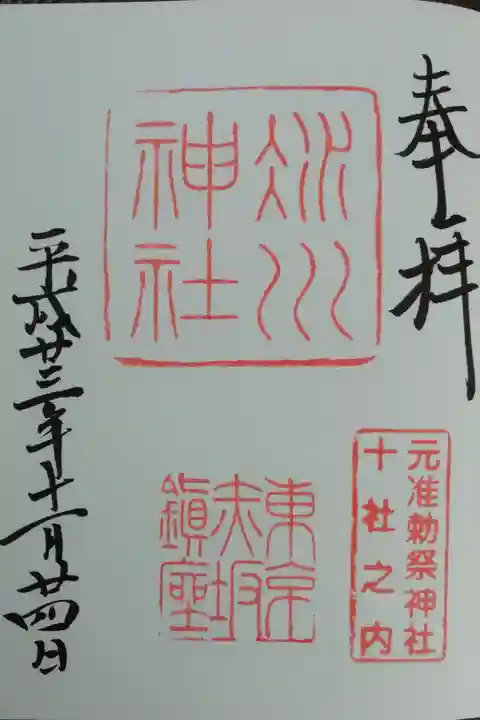 奉拝
氷川
神社
元准勅祭神社
十社之内
東京
赤坂
鎮座
平成廿三年十一月廿四日